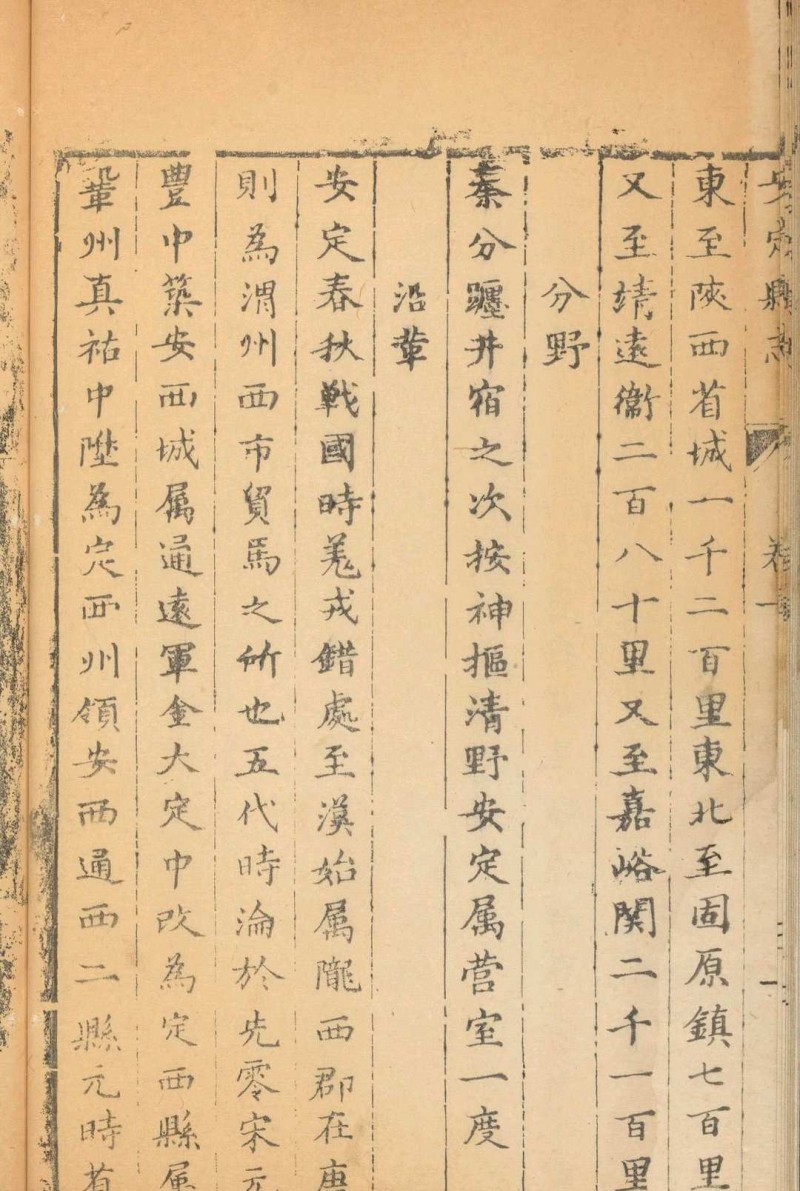 安定縣志 卷一 一
東至陝西省城一千二百里東北至固原鎮七百里
又至靖遠衛二百八十里又至嘉峪関二千一百里
分野
秦分躔井宿之次按神樞清野安定属营室一度
沿革
安定春秋戦國時羗戎錯處至漢始属隴西郡在唐
則為渭州西市貿馬之所也五代時淪於先零宋元
豐中築安西城属通遠軍金大定中改為定西縣属
鞏州真祐中陞為定西州領安西通西二縣元時省